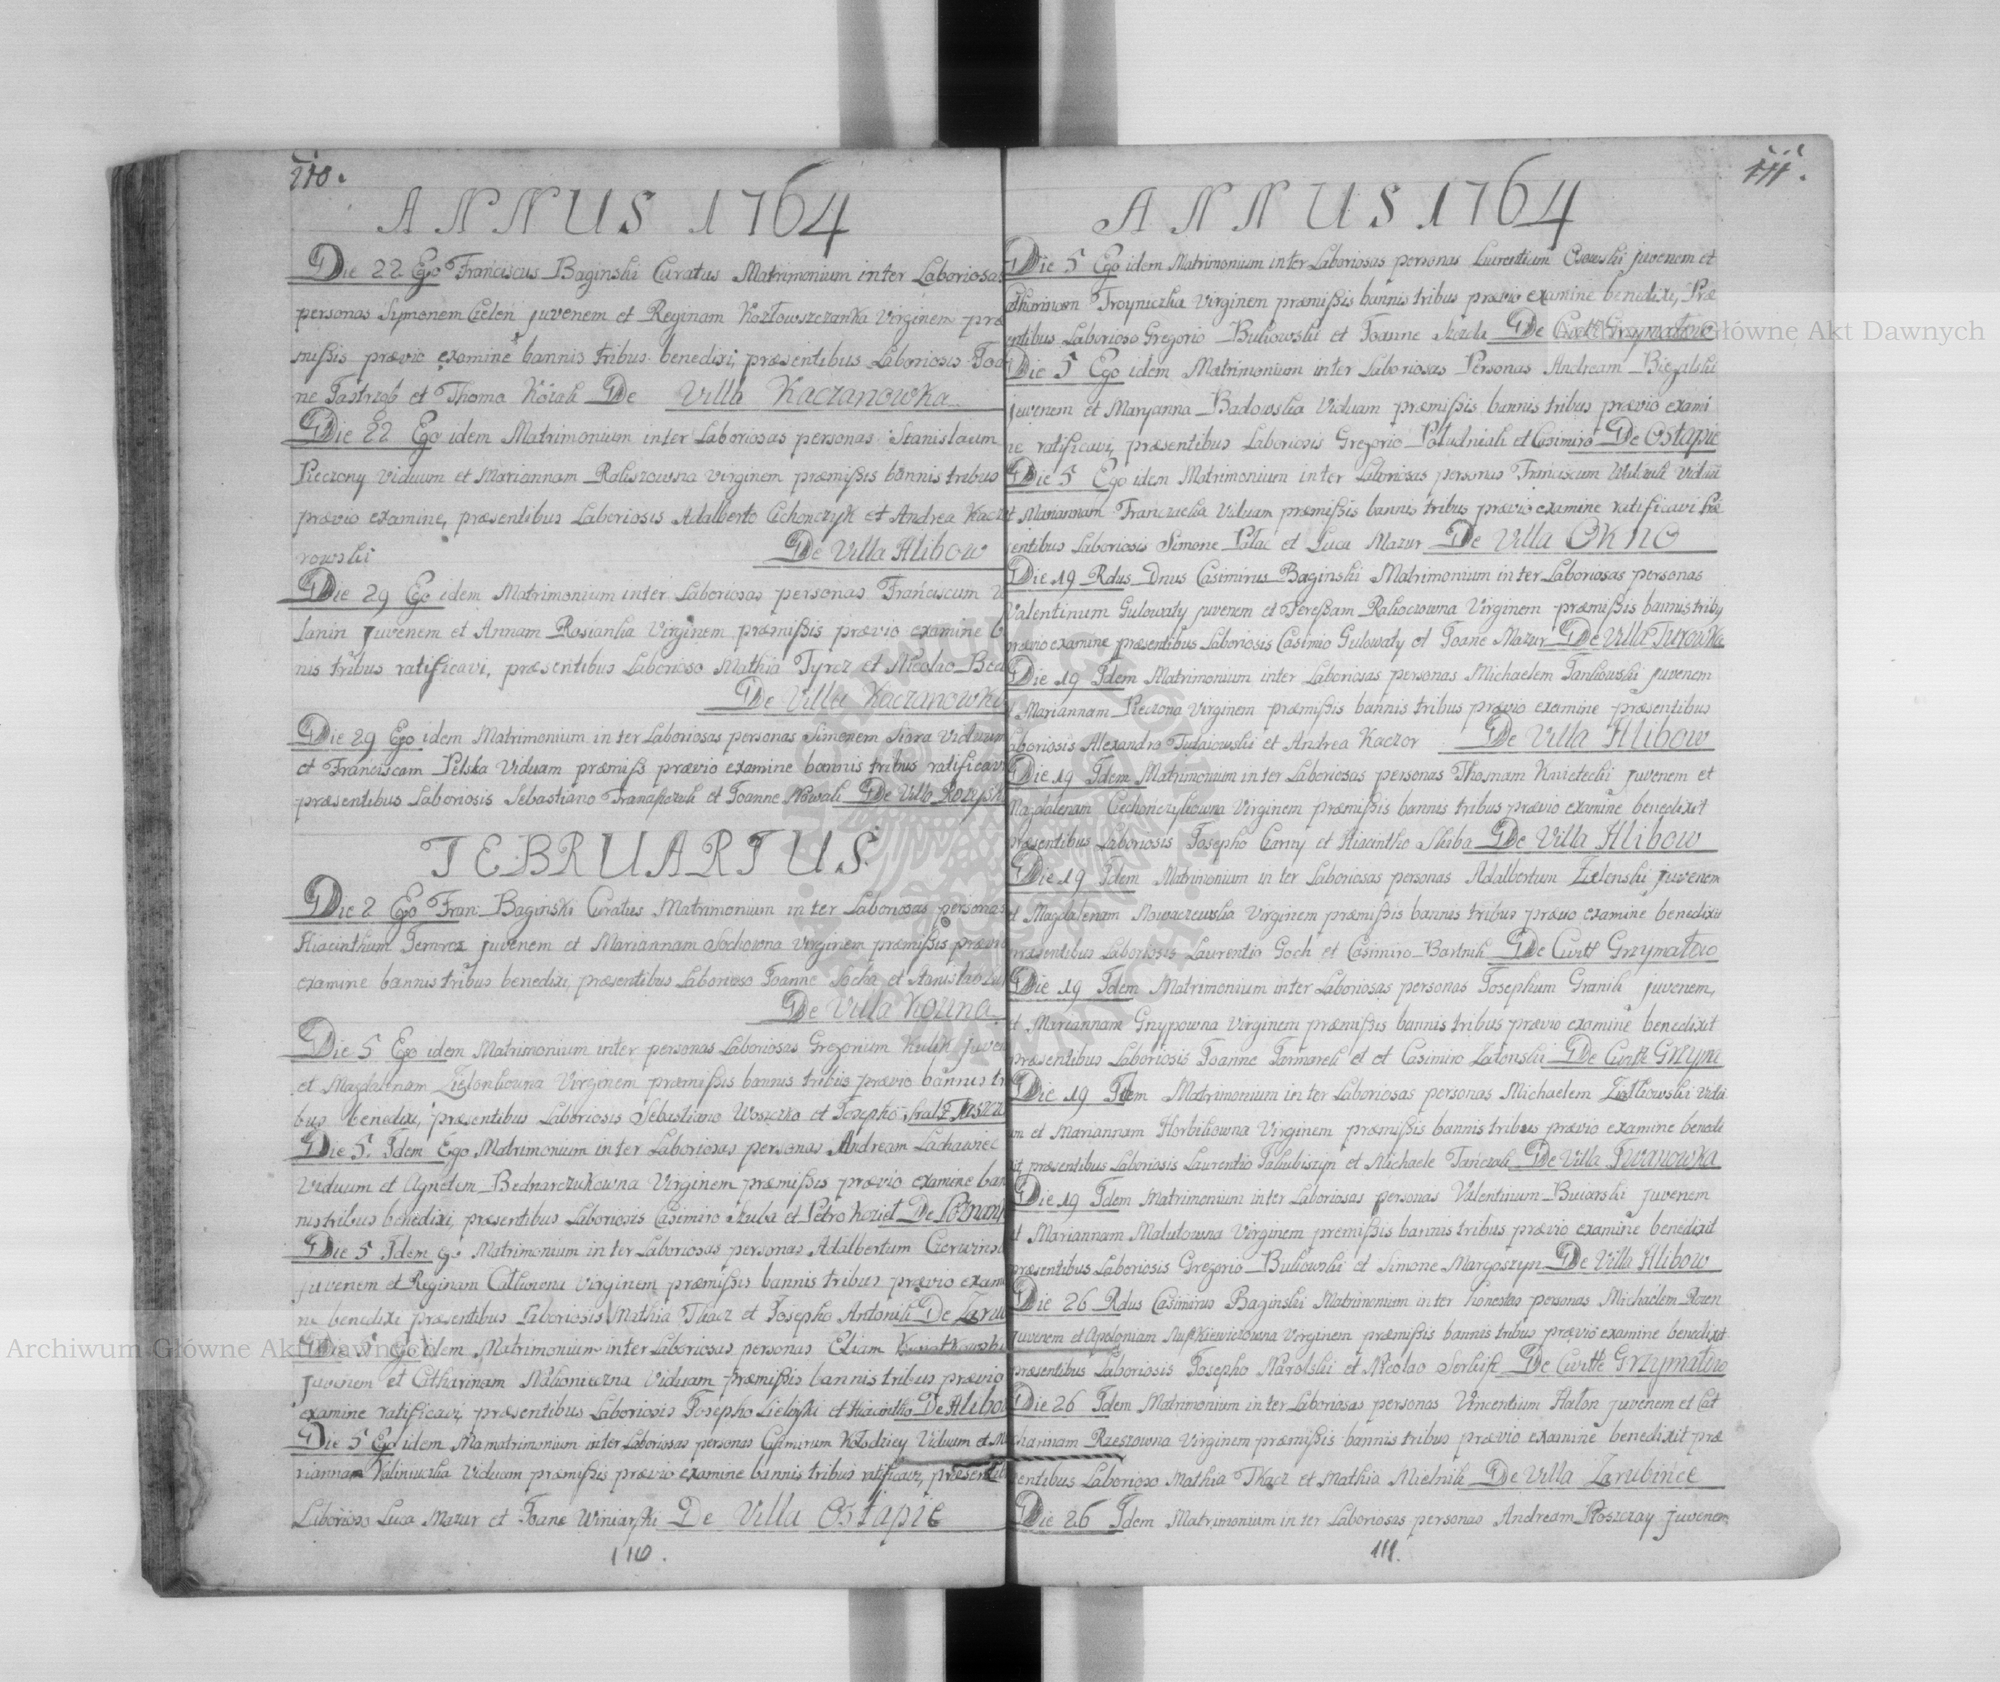 110.
ANNUS 1764
Die 22 Ego Franciscus Baginski Curatus Matrimonium inter Laboriosas
personas Symonem Cielen juvenem et Reginam Kozłowszczanka Virginem præ
mißis prævio examine bannis tribus benedixi, præsentibus Laboriosis Joa
ne Jastrząb et Thoma Kozak De Villa Kaczanowka
Die 22 Ego idem Matrimonium inter Laboriosas personas Stanislaum
Pieczony Viduum et Mariannam Raliszowna virginem præmißis bannis tribus
prævio examine, præsentibus Laboriosis Adalberto Cichonczyk et Andrea Kacz
rowski De Villa Hlibow
Die 29 Ego idem Matrimonium inter Laboriosas personas Franciscum
lanin juvenem et Annam Rosianka Virginem præmißis prævio examine
nis tribus ratificavi, præsentibus Laborioso Mathia Tyrcz et Nicolao
De Villa Kaczanowka
Die 29 Ego idem Matrimonium inter Laboriosas personas Simonem Siara Viduum
et Franciscam Pelska Viduam præmiß prævio examine bannis tribus ratificavi
præsentibus Laboriosis Sebastiano et Joanne Nowak De Villa
FEBRUARIUS
Die 2 Ego Fran: Baginski Curatus Matrimonium inter Laboriosas personas
Hiacinthum juvenem et Mariannam Sochowna virginem præmißis prævio
examine bannis tribus benedixi, præsentibus Laborioso Joanne Socha et Stanislao
De Villa
Die 5 Ego idem Matrimonium inter personas Laboriosas Gregorium Kulik juven
et Magdalenam Zielonkowna Virginem præmißis bannis tribus prævio bannis tri
bus benedixi, præsentibus Laboriosis Sebastiano Woszczko et Josepho
Die 5. Idem Ego Matrimonium inter Laboriosas personas Andream Lachawiec
Viduum et Agnetem Bednarczukowna Virginem præmißis prævio examine ban
nis tribus benedixi, præsentibus Laboriosis Casimiro Szuba et Petro Kozieł De
Die 5 Idem Ego Matrimonium inter Laboriosas personas Adalbertum Czerwinsk
juvenem et Reginam virginem præmißis bannis tribus prævio exami
ne benedixi præsentibus Laboriosis Mathia Tkacz et Josepho Antonik De Zarub
Die 5 Ego idem Matrimonium inter Laboriosas personas Eliam
juvenem et Catharinam Viduam præmißis bannis tribus prævio
examine ratificavi præsentibus Laboriosis Josepho et Hiacintho De Hlibo
Die 5 Ego idem Mamatrimonium inter Laboriosas personas Casimirum Kołodziey Viduum et Ma
riannam Kaliniuczka Viduam præmißis prævio examine bannis tribus ratificavi, præsentib
Laborioso Luca Mazur et Joane Winiarski De Villa Ostapie
110.
111.
ANNUS 1764
Die 5 Ego idem Matrimonium inter Laboriosas personas Laurentium juvenem et
atharinam Troyniczka Virginem præmißis bannis tribus prævio examine benedixi, Præ
entibus Laborioso Gregorio Bukowski et Joanne De
Die 5 Ego idem Matrimonium inter Laboriosas Personas Andream Biegalski
juvenem et Maryanna Badowska Viduam præmißis bannis tribus prævio exami
ne ratificavi, præsentibus Laboriosis Gregorio et Casimiro De Ostapie
Die 5 Ego idem Matrimonium inter Laboriosas personas Franciscum
et Mariannam Franczucka Viduam præmißis bannis tribus prævio examine ratificavi Præ
sentibus Laboriosis Simone et Luca Mazur De Villa OKNO
Die 19 Rdus Dnus Casimirus Baginski Matrimonium inter Laboriosas personas
Valentinum Gulowaty juvenem et Tereßam Virginem præmißis bannis tribu
prævio examine præsentibus Laboriosis Casimio Gulowaty et Joane Mazur De Villa Turowka
Die 19 Idem Matrimonium inter Laboriosas personas Michaelem Jankowski juvenem
et Mariannam Pieczona Virginem præmißis bannis tribus prævio examine præsentibus
Laboriosis Alexandro et Andrea Kaczor De Villa Hlibow
Die 19 Idem Matrimonium inter Laboriosas personas Thomam Kwietecki juvenem et
Magdalenam Cichonczykowna Virginem præmißis bannis tribus prævio examine benedixit
præsentibus Laboriosis Josepho Czarny et Hiacintho Skiba De Villa Hlibow
Die 19 Idem Matrimonium inter Laboriosas personas Adalbertum Zielenski juvenem
et Magdalenam Nowaczewska Virginem præmißis bannis tribus prævio examine benedixit
præsentibus Laboriosis Laurentio Goch et Casimiro Bartnik De Civitt Grzymałow
Die 19 Idem Matrimonium inter Laboriosas personas Josephum Granik juvenem,
et Mariannam Gnypowna Virginem præmißis bannis tribus prævio examine benedixit
præsentibus Laboriosis Joanne et et Casimiro De Civitt Grzym
Die 19 Idem Matrimonium inter Laboriosas personas Michaelem Ziołkowski
um et Mariannam Horbikowna Virginem præmißis bannis tribus prævio examine benedi
xit præsentibus Laboriosis Laurentio Jakubiszyn et Michaele De Villa Iwanowka
Die 19 Idem Matrimonium inter Laboriosas personas Valentinum juvenem
et Mariannam Malutowna Virginem premißis bannis tribus prævio examine benedixit
præsentibus Laboriosis Gregorio Bukowski et Simone Margoszyn De Villa Hlibow
Die 26 Rdus Casimirus Baginski Matrimonium inter honestas personas Michaelem
juvenem et Apoloniam Virginem præmißis bannis tribus prævio examine benedixit
præsentibus Laboriosis Josepho Narolski et Nicolao De Civitte Grzymałow
Die 26 Idem Matrimonium inter Laboriosas personas Vincentium juvenem et Cat
harinam Rzeszowna Virginem præmißis bannis tribus prævio examine benedixit præ
sentibus Laborioso Mathia Tkacz et Mathia Mielnik De Villa Zarubince
Die 26 Idem Matrimonium inter Laboriosas personas Andream juvenem
111.
Archiwum Główne Akt Dawnych
Archiwum Główne Akt Dawnych